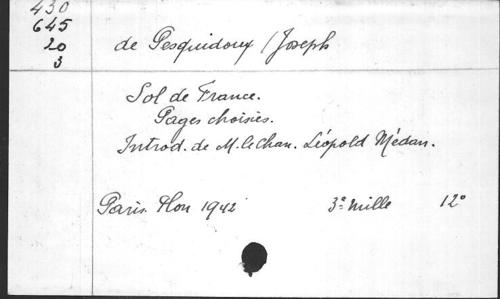 430
645
20
3
de Pesquidoux /Joseph
Sol de France.
Pages choisies.
Introd. de M. le Chan. Léopold Médan.
Paris. Plon 1942 3e mille 12°